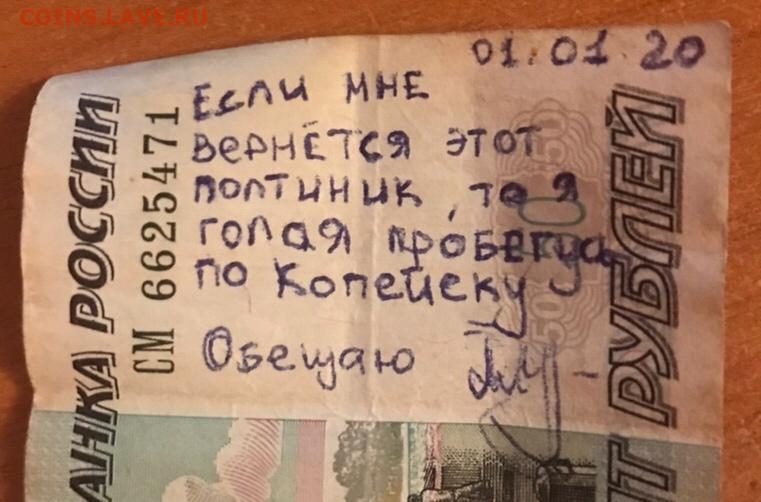 COINS.LAVE.RU
01.01.20
Если мне
вернётся этот
полтиник, то я
голая пробегусь
по Копейску
Обещаю
СМ 6625471
АНКА РОССИИ
Т РУБЛЕЙ